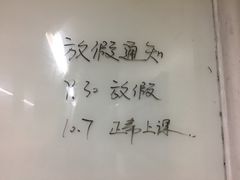 放假通知
9.30 放假
10.7 正常上课..